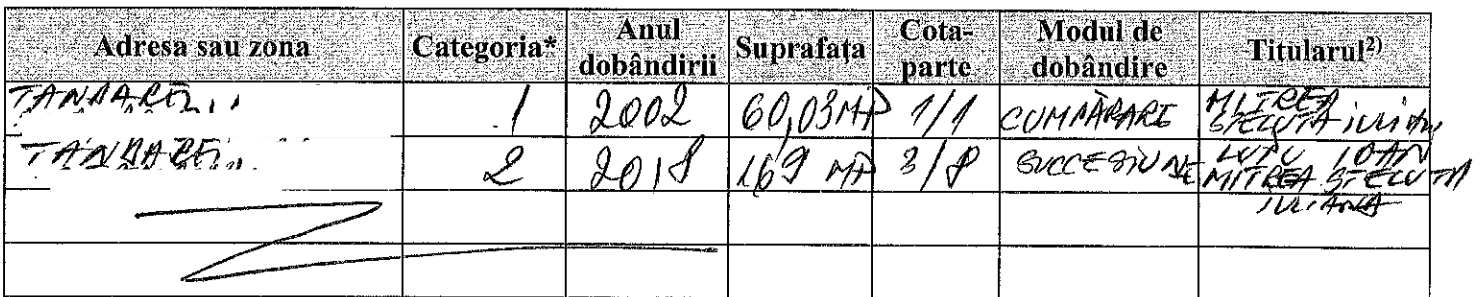 Adresa sau zona Categoria* Anul dobândirii Suprafața Cota-parte Modul de dobândire Titularul²⁾
ȚĂNDĂREI 1 2002 60,03 MP 1/1 CUMPĂRARE MITREA STELUTA IULIANA
ȚĂNDĂREI 2 2018 169 MP 3/8 SUCCESIUNE LUPU IOAN MITREA STELUTA IULIANA